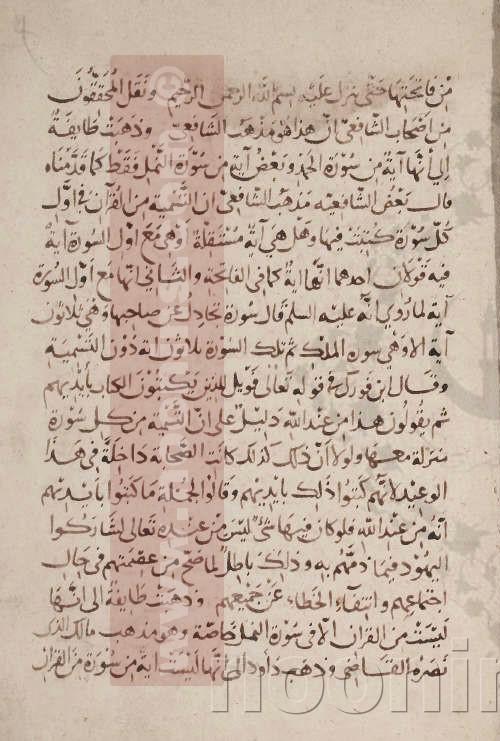 من فاتحتها حتى نزل عليه بسم الله الرحمن الرحيم ونقل المحققون
من اصحاب الشافعي ان هذا هو مذهب الشافعي وذهبت طايفة
الى انها آية من سورة الحمد وبعض آية من سورة النمل فقط كما قدمناه
قال بعض الشافعيه مذهب الشافعي ان التسمية من القرآن في اول
كل سورة كتبت فيها وهل هي آية مستقلة او هي مع اول السورة آية
فيه قولان احدهما انها اية كما في الفاتحة والثاني انها مع اول السورة
آية لما روي انه عليه السلم قال سورة تجادل عن صاحبها وهي ثلاثون
آية الا وهي سورة الملك ثم تلك السورة ثلاثون اية دون التسمية
وقال ابن فورك في قوله تعالى فويل للذين يكتبون الكتاب بايديهم
ثم يقولون هذا من عند الله دليل على ان التسمية من كل سورة
منزلة معها ولولا ان ذلك كذلك كانت الصحابة داخلة في هذا
الوعيد لانهم كتبوا ذلك بايديهم وقالوا لجملة ما كتبوا بايديهم
انه من عند الله فلو كان فيها شئ ليس من عنده تعالى لشاركوا
اليهود فيما ذمهم به وذلك باطل لما صح من عصمتهم في حال
اجتماعهم وانتفاء الخطاء عن جميعهم وذهبت طايفة الى انها
ليست من القران الا في سورة النمل خاصة وهو مذهب مالك
نصره القاضي وذهب داود الى انها ليست اية من سورة من القران
noorin